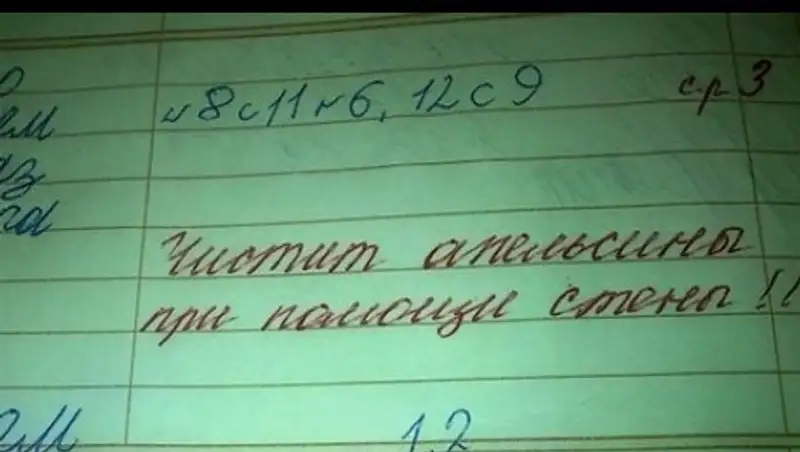 и 8 с 11 н 6, 12 с 9 ср 3
Чистит апельсины
при помощи стены!!
1,2